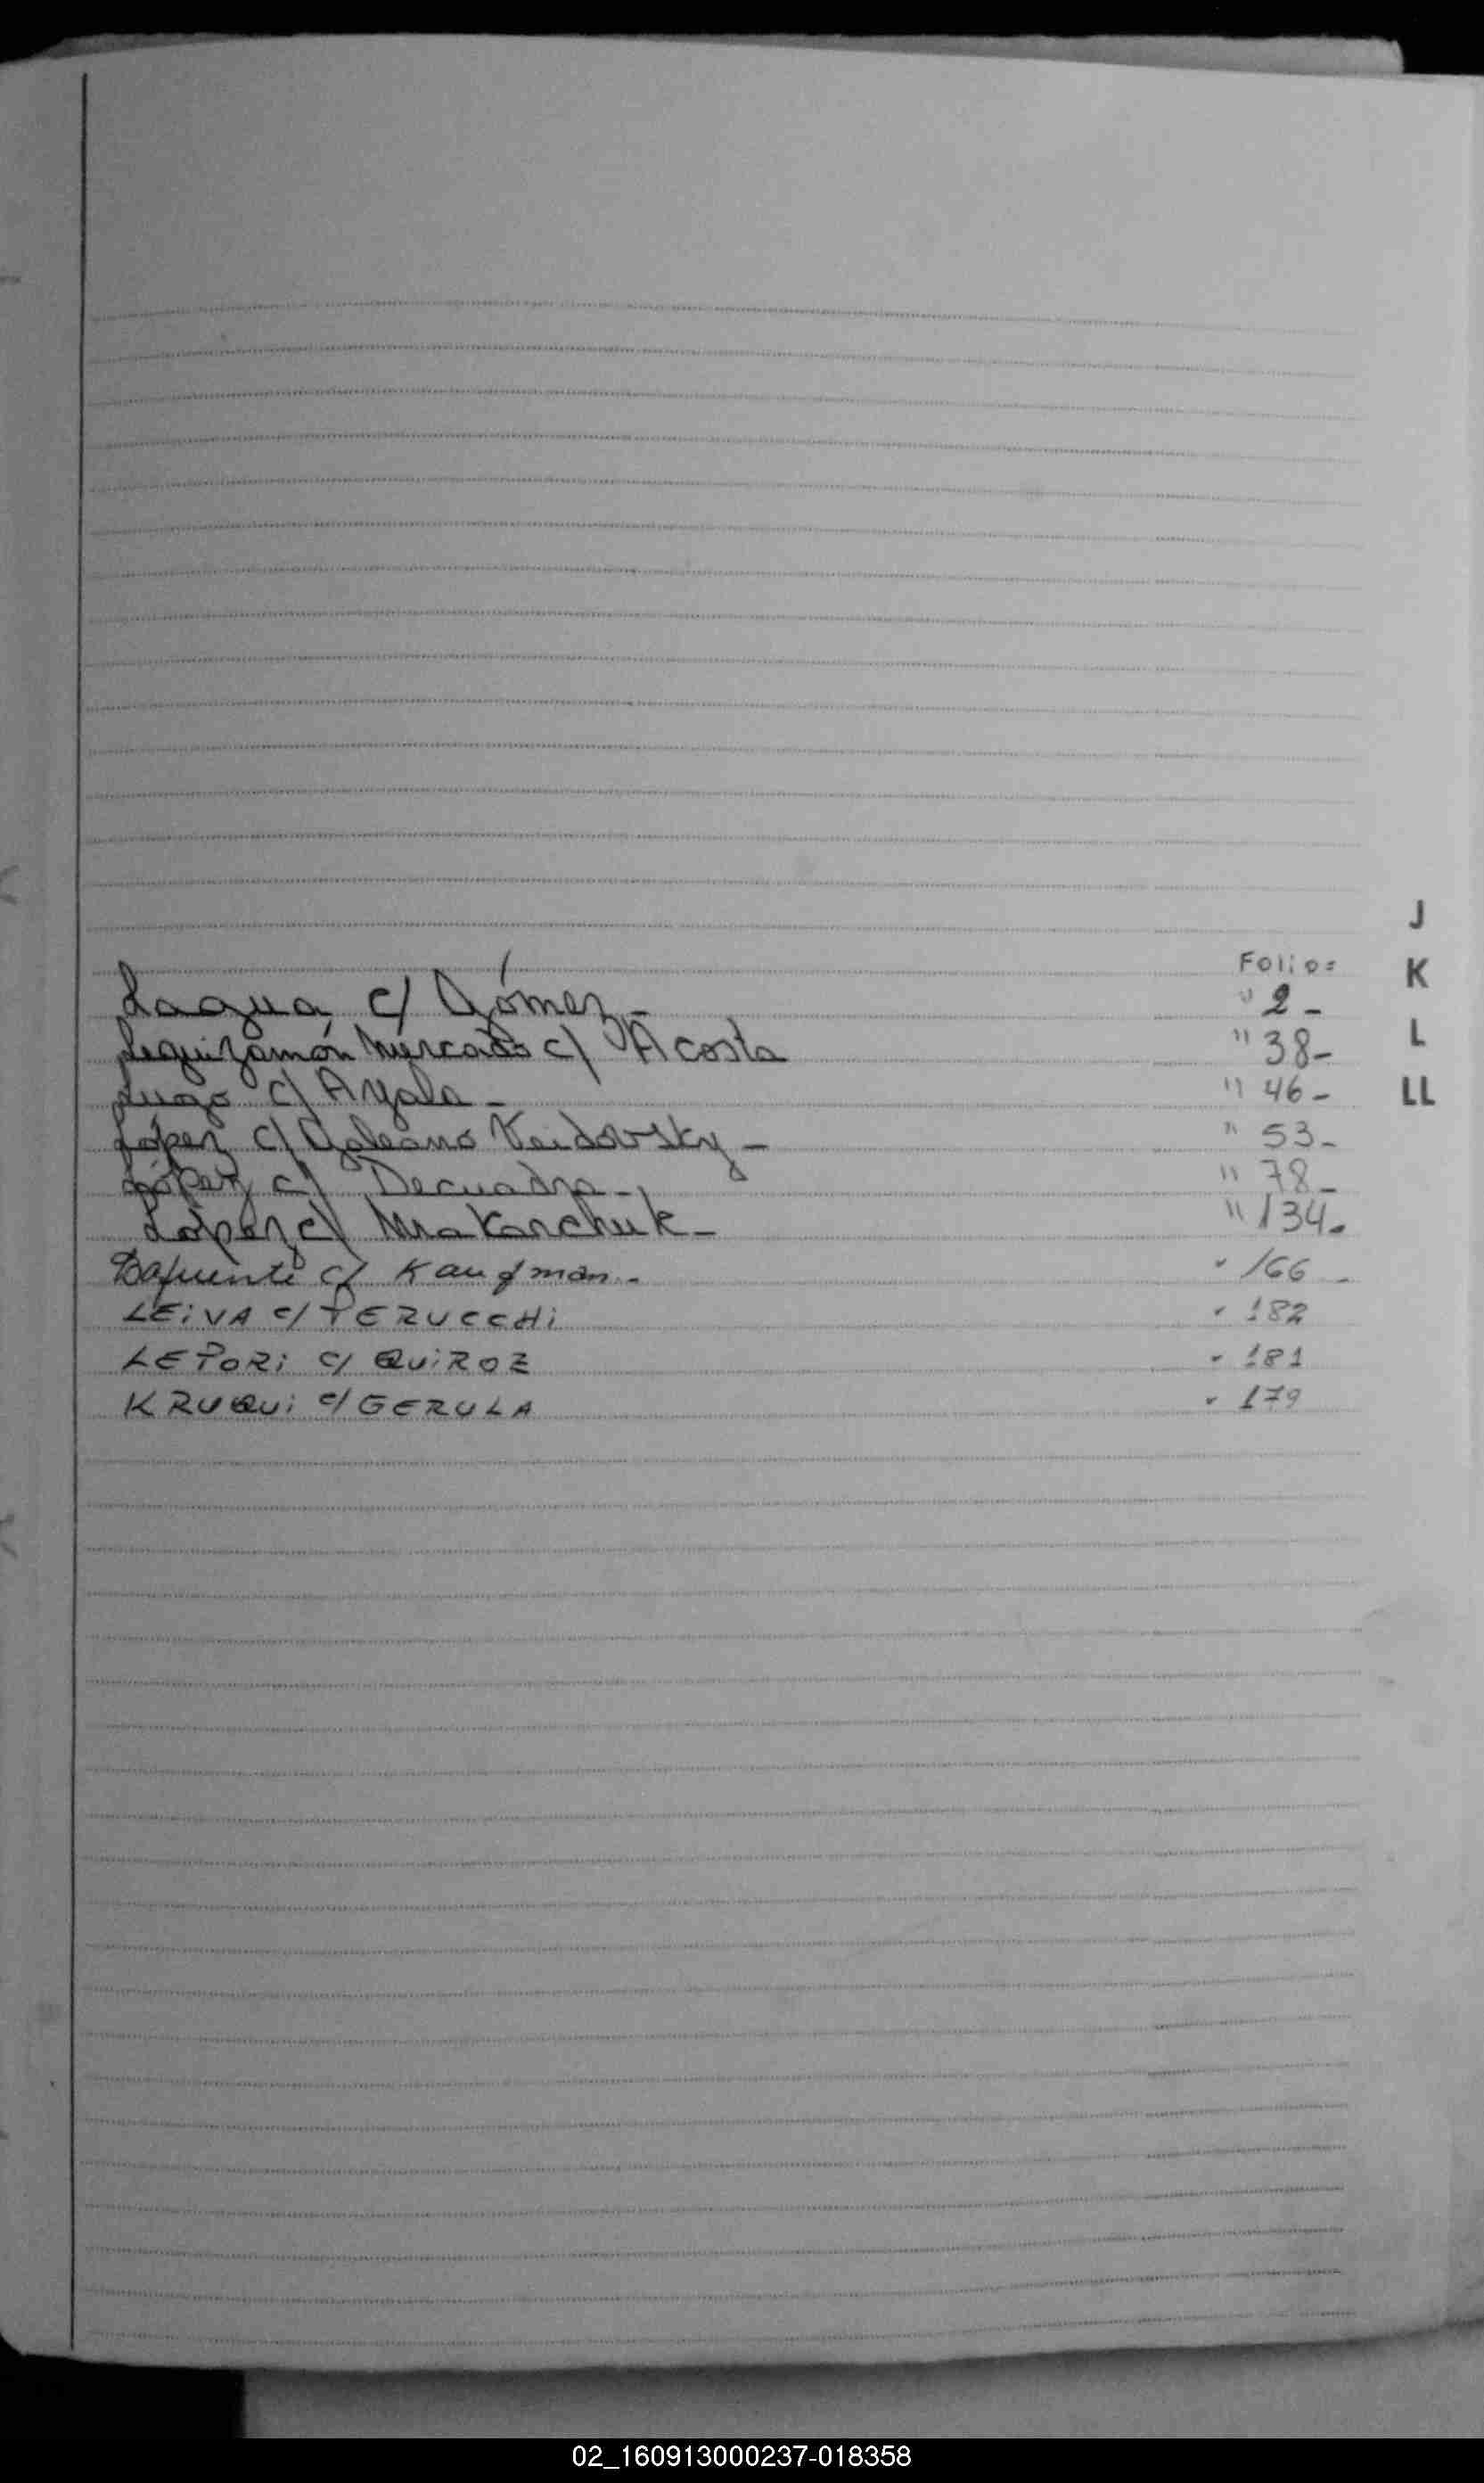 Folios
Lagua c/ Gómez - " 2 -
Leguizamón Mercado c/ Acosta " 38 -
Lugo c/ Ayala - " 46 -
López c/ Galeano Veidovsky - " 53 -
López c/ Decuadra - " 78 -
López c/ Makarchuk - " 134 -
Lafuente c/ Kaufman.- " 166 -
LEiVA c/ PERUCCHi " 182
LEPORi c/ QUiROZ " 181
KRUQUi c/ GERULA " 179
J
K
L
LL
02_160913000237-018358